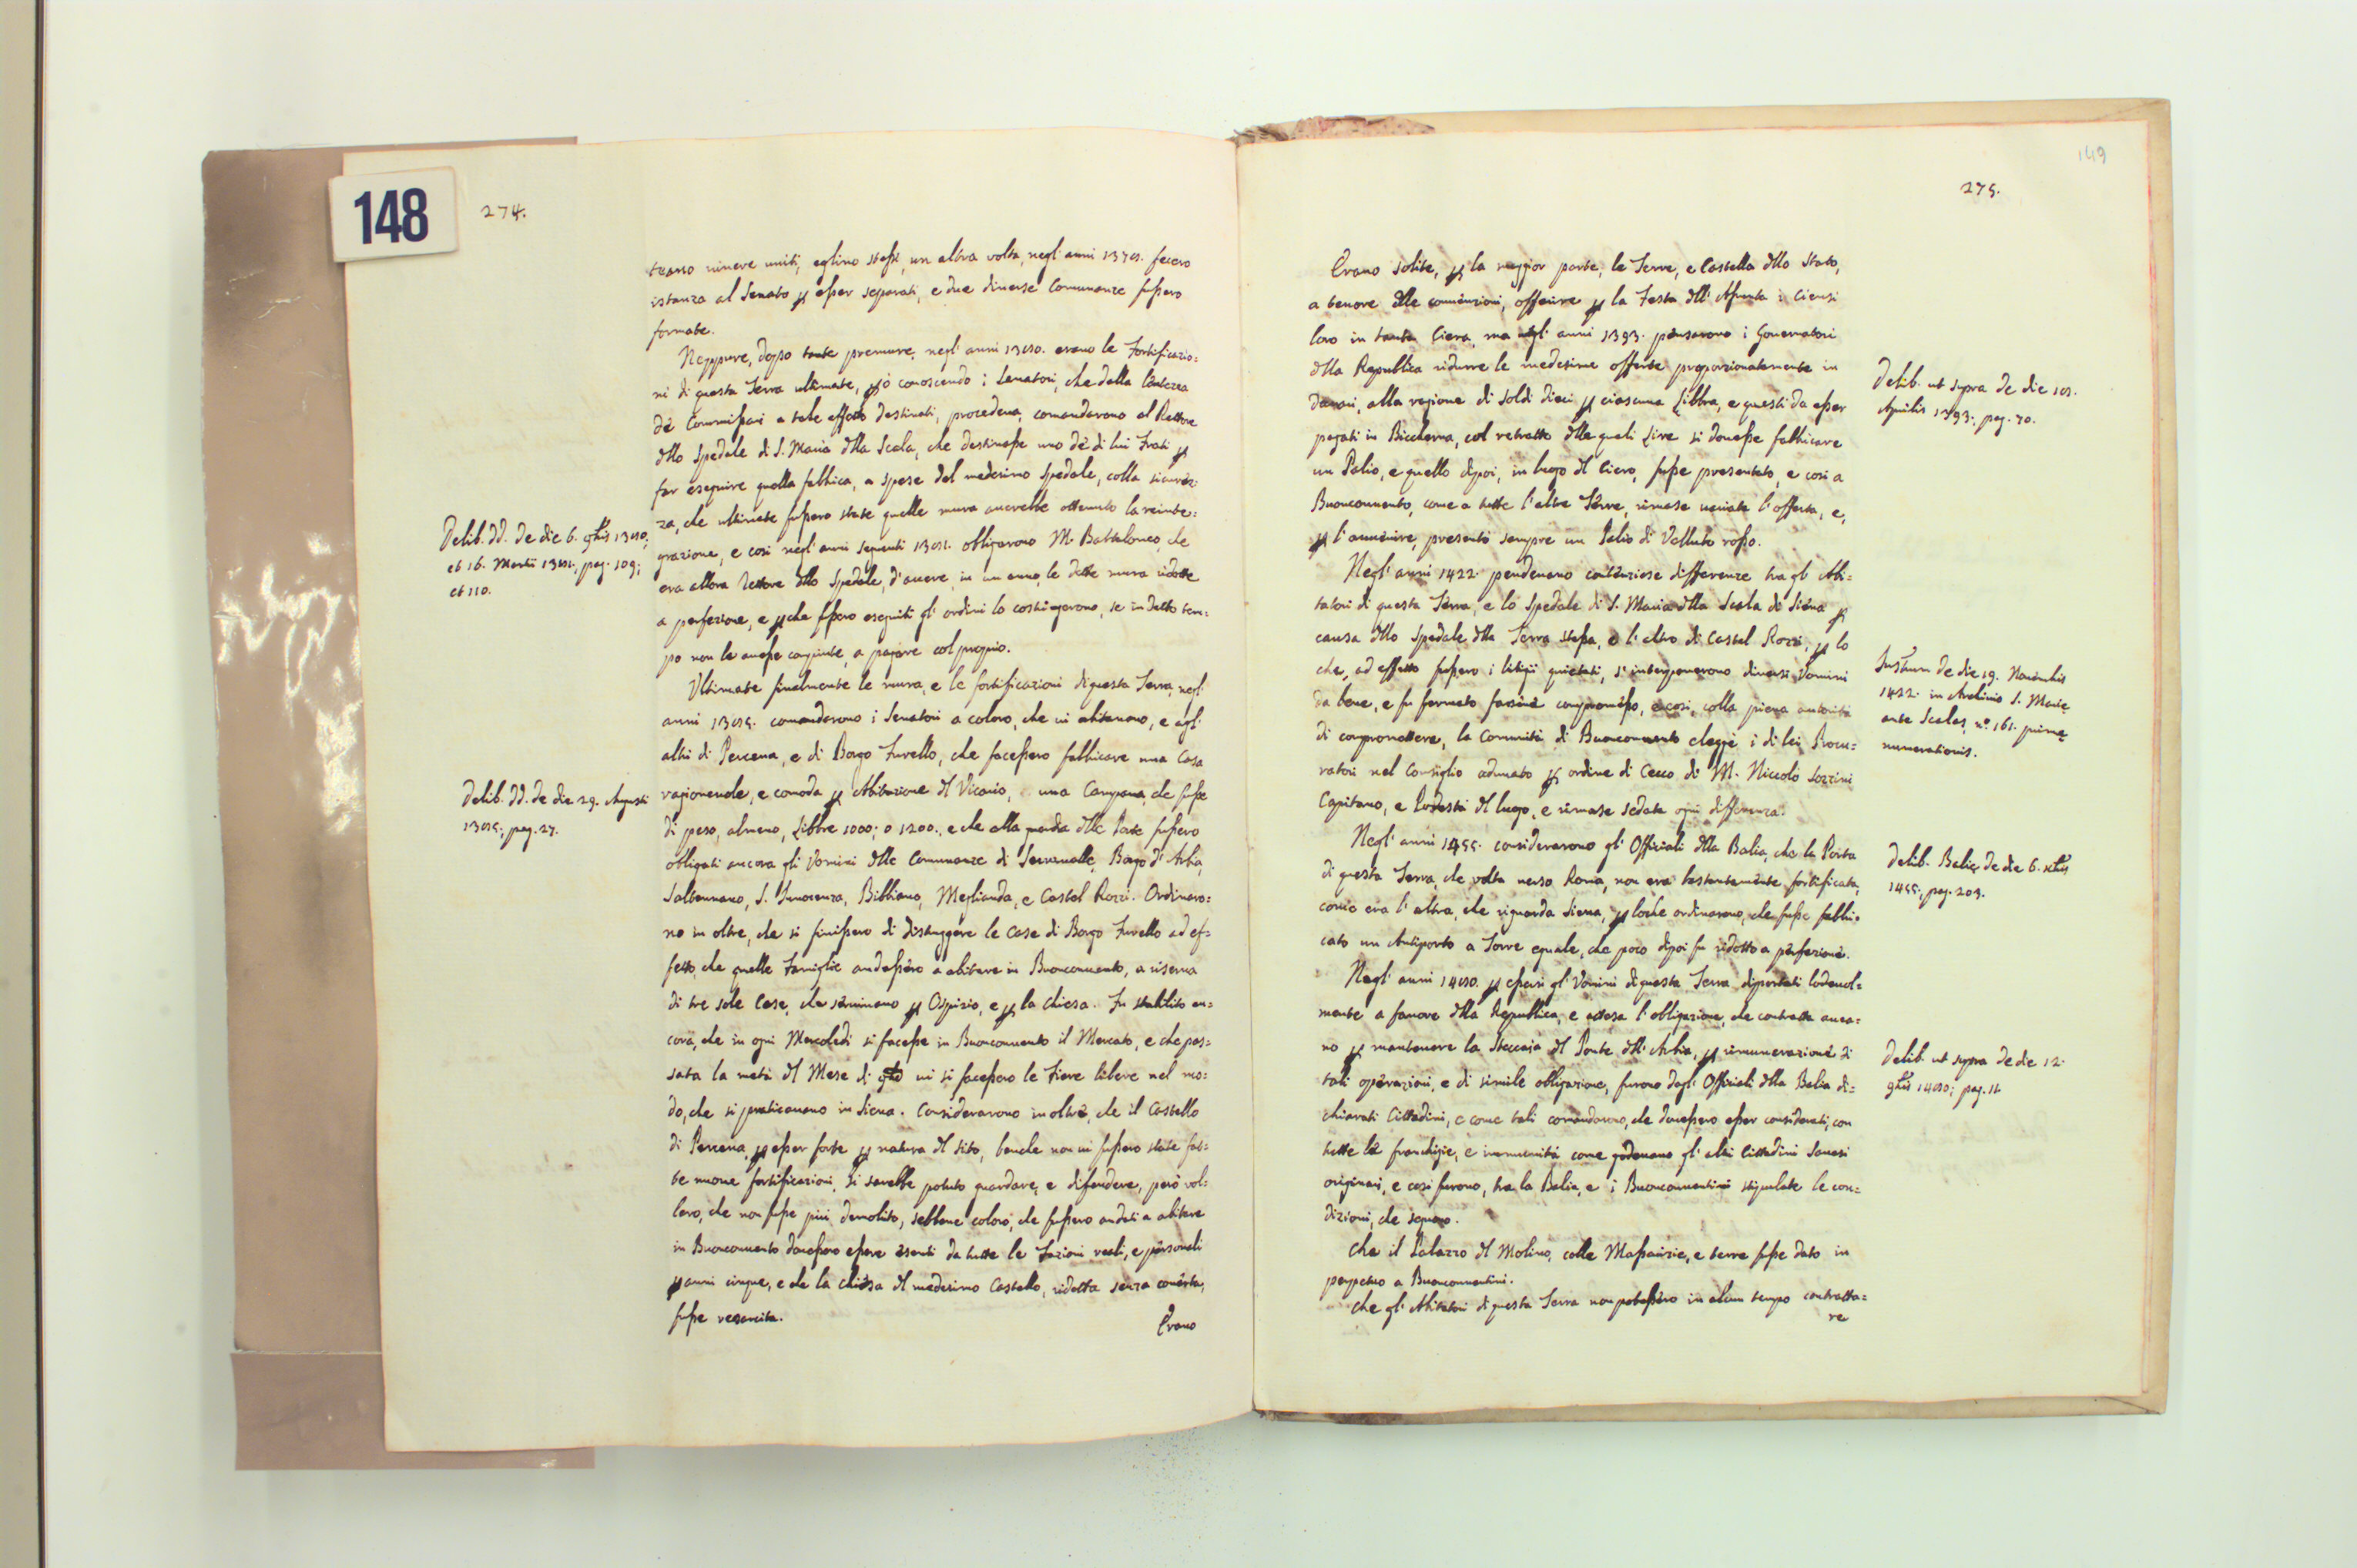 148
274.
uiuere uniti, eglino stessi, un altra volta, negl' anni fecero
istanza al Senato ꝑ esser separati, e due diuerse Comunanze fussero
formate.
Neppure, doppo tante premure, negl' anni erano le Fortificazio=
ni di questa Terra ultimate, ꝑò conoscendo i Senatori, che dalla lentezza
dè Commissari a tale effetto destinati, procedeua, comandarono al Rettore
dllo Spedale di S. Maria dlla Scala, che destinasse uno dè di lui Frati ꝑ
far eseguire quella fabbrica, a spese del medesimo Spedale, colla sicurez=
za, che ultimate fussero state quelle mura auerebbe ottenuto la reinte=
grazione, e così negl' anni seguenti obligarono M. Bartolomeo, che
era allora Rettore dllo Spedale, d'auere, in un anno, le dette mura ridotte
a perfezione, e ꝑche fussero eseguiti gl' ordini lo costrinsero, se in detto tem=
po non le auesse compiute, a pagare col proprio.
Delib. dd. de die 6.
et 16. Martii pag. 109;
et 110.
Vltimate finalmente le mura, e le fortificazioni di questa Terra, negl'
anni comandarono i Senatori a coloro, che ui abitauano, e agl'
altri di Percena, e di Borgo Furello, che facessero fabbricare una Casa
ragioneuole, e comoda ꝑ Abitazione dl Vicario, una Campana, che fusse
di peso, almeno, Libbre 1000; o 1200., e che alla guardia dlle Porte fussero
obligati ancora gli Vomini dlle Communanze di Serraualle, Borgo d' Arbia,
Salteannano, S. Innocenza, Bibbiano, Meglianda, e Castel Rozzi. Ordinaro=
no in oltre, che si finissero di distruggere le Case di Borgo Furello ad ef=
fetto, che quelle Famiglie andassero a abitare in Buonconuento, a riserua
di tre sole Case, che seruiuano ꝑ Ospizio, e ꝑ la Chiesa. Fu stabilito an=
cora, che in ogni Mercoledi si facesse in Buonconuento il Mercato, e che pas=
sata la metà dl Mese di ui si facessero le Fiere libere nel mo=
do, che si praticauano in Siena. Considerarono in oltre, che il Castello
di Percena, ꝑ esser forte ꝑ natura dl sito, benche non ui fussero state fat=
te nuoue fortificazioni, si sarebbe potuto guardare, e difendere, però vol=
lero, che non fusse piu demolito, sebbene coloro, che fussero andati a abitare
in Buonconuento douessero essere esenti da tutte le fazioni reali, e personali
ꝑ anni cinque, e che la Chiesa dl medesimo Castello, ridotta senza couerta,
fusse resarcita.
Delib. dd. de die 29. Augusti
pag. 27.
Erano
149
275.
Erano solite, ꝑ la maggior parte, le Terre, e Castella dllo Stato,
a tenore dlle conuenzioni, offerire ꝑ la Festa dll' Assunta i Ciensi
loro in tanta Ciera, ma negl' anni 1393. pensarono i Gouernatori
dlla Republica ridurre le medesime offerte proporzionatamente in
denari, alla ragione di soldi dieci ꝑ ciascuna Libbra, e questi da esser
pagati in Biccherna, col retratto dlle quali Lire si douesse fabbricare
un Palio, e quello dipoi, in luogo dl Ciero, fusse presentato, e cosi a
Buonconuento, come a tutte l' altre Terre, rimase uariata l' offerta, e,
ꝑ l' auuenire, presentò sempre un Palio di Velluto rosso.
Delib. ut supra de die
Aprilis 1393. pag. 70.
Negl' anni 1422. pendeuano contenziose differenze tra gl' Abi=
tatori di questa Terra, e lo Spedale di S. Maria dlla Scala di Siena ꝑ
causa dllo Spedale dlla Terra stessa, e l' altro di Castel Rozzi, ꝑ lo
che, ad effetto fussero i litigii quietati, s' interponerono diuersi Vomini
da bene, e fu formato farsine compromesso, e così, colla piena autorità
di compromettere, la Comunità di Buonconuento elesse i di lei Procu=
ratori nel Consiglio adunato ꝑ ordine di Cecco di M. Niccolò Sozzini
Capitano, e Podestà dl luogo, e rimase sedata ogni differenza.
de die 19. Nouembris
1422. in Archiuio S. Marie
ante Scalas, n.º 161. prime
numerationis.
Negl' anni 1455. considerarono gl' Officiali dlla Balia, che la Porta
di questa Terra, che volta uerso Roma, non era bastantemente fortificata,
come era l' altra, che riguarda Siena, ꝑ loche ordinarono, che fusse fabbri=
cato un Antiporto a Torre eguale, che poco dipoi fu ridotto a perfezione.
Delib. Balie de die 6.
1455., pag. 203.
Negl' anni ꝑ essersi gl' Vomini di questa Terra diportati lodeuol=
mente a fauore dlla Republica, e attesa l' obligazione, che contratta auea=
no ꝑ mantenere la Steccaia dl Ponte dll' Arbia, ꝑ rimunerazione di
tali operazioni, e di simile obligazione, furono dagl' Officiali dlla Balia di=
chiarati Cittadini, e come tali comandarono, che douessero esser considerati, con
tutte le franchigie, e immunità come godeuano gl' altri Cittadini Sanesi
originari, e così furono, tra la Balia, e i Buonconuentini stipulate le con=
dizioni, che seguono.
Delib. ut supra de die 12.
pag. 11.
Che il Palazzo dl Molino, colle Massarizie, e terre fusse dato in
perpetuo a Buonconuentini.
Che gl' Abitatori di questa Terra non potessero in alcun tempo contratta=
re